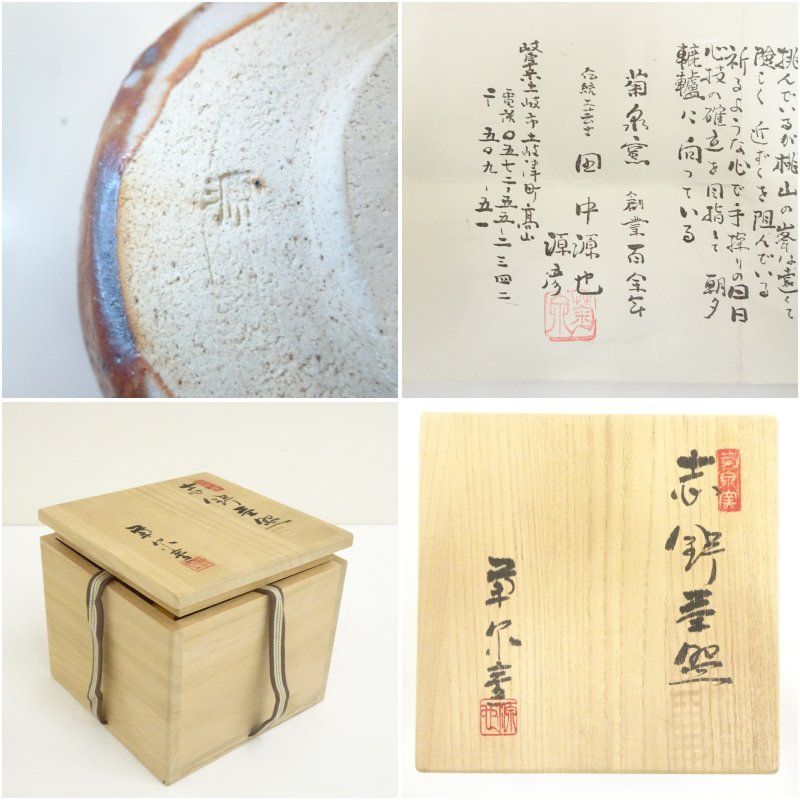 源
挑んでいるが桃山の峯は遠くて
険しく 近ずくを阻んでいる
祈るような心で手探りの日日
心技の確立を目指して 朝夕
轆轤に向っている
菊泉窯 創業百余年
伝統工芸士 田中源也
源彦
岐阜県土岐市土岐津町高山
電話〇五七二-五五-二三四二
〒五〇九-五一
菊泉窯
志野茶盌
菊泉窯